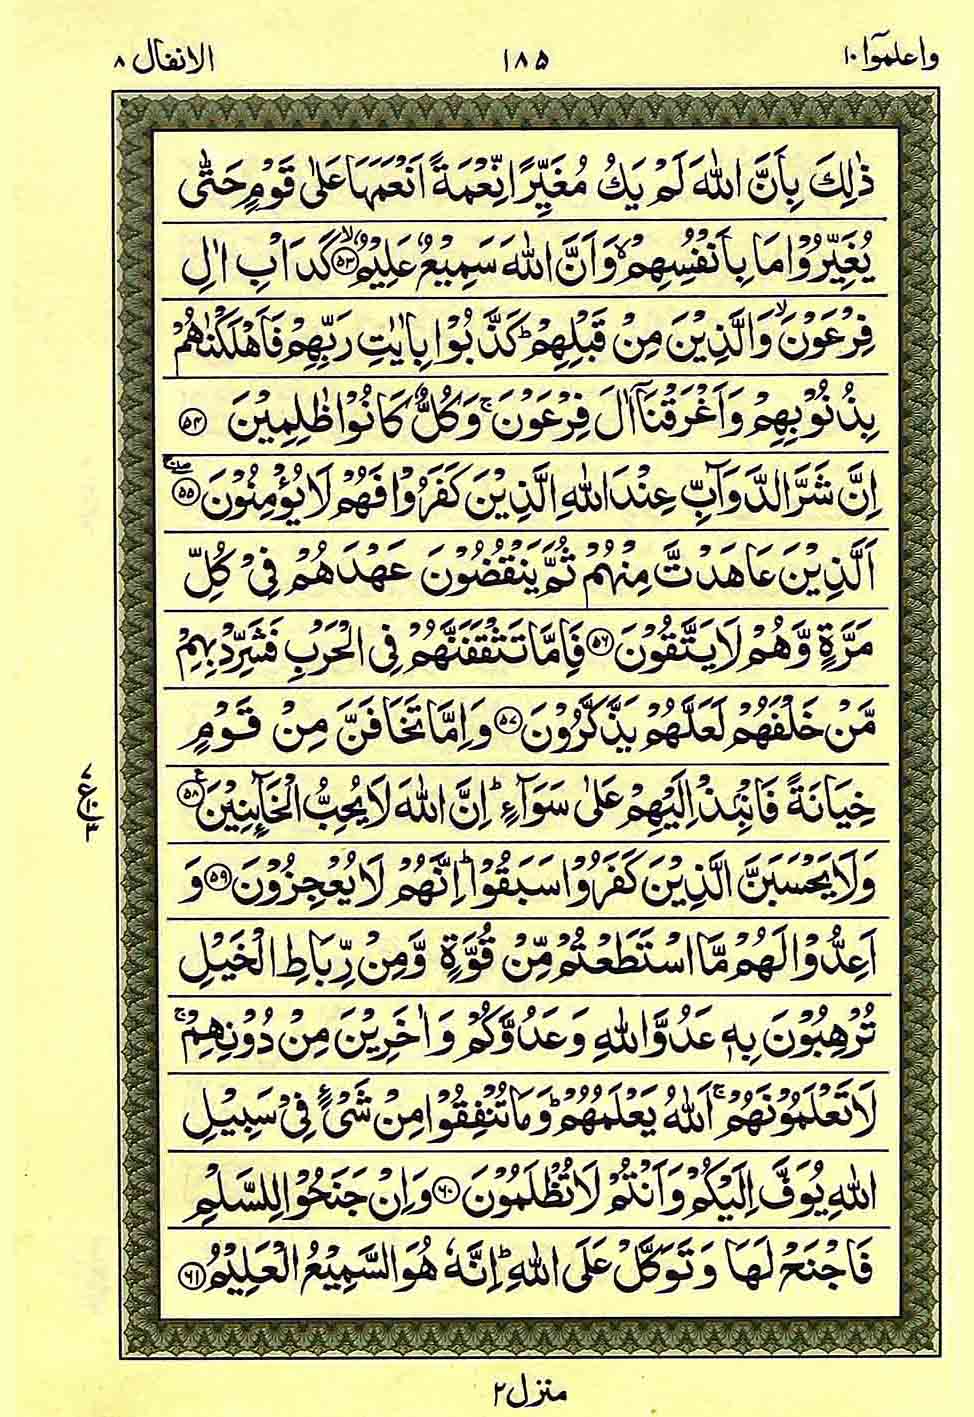 واعلموٓا ١٠ ١٨٥ الانفال ٨
ذٰلِكَ بِاَنَّ اللّٰهَ لَمْ يَكُ مُغَيِّرًا نِّعْمَةً اَنْعَمَهَا عَلٰى قَوْمٍ حَتّٰى
يُغَيِّرُوْا مَا بِاَنْفُسِهِمْ ۙ وَاَنَّ اللّٰهَ سَمِيْعٌ عَلِيْمٌ ۙ ﴿٥٣﴾ كَدَاْبِ اٰلِ
فِرْعَوْنَ ۙ وَالَّذِيْنَ مِنْ قَبْلِهِمْ ؕ كَذَّبُوْا بِاٰيٰتِ رَبِّهِمْ فَاَهْلَكْنٰهُمْ
بِذُنُوْبِهِمْ وَاَغْرَقْنَاۤ اٰلَ فِرْعَوْنَ ۚ وَكُلٌّ كَانُوْا ظٰلِمِيْنَ ﴿٥٤﴾
اِنَّ شَرَّ الدَّوَآبِّ عِنْدَ اللّٰهِ الَّذِيْنَ كَفَرُوْا فَهُمْ لَا يُؤْمِنُوْنَ ۖۚ ﴿٥٥﴾
اَلَّذِيْنَ عَاهَدْتَّ مِنْهُمْ ثُمَّ يَنْقُضُوْنَ عَهْدَهُمْ فِيْ كُلِّ
مَرَّةٍ وَّهُمْ لَا يَتَّقُوْنَ ﴿٥٦﴾ فَاِمَّا تَثْقَفَنَّهُمْ فِى الْحَرْبِ فَشَرِّدْ بِهِمْ
مَّنْ خَلْفَهُمْ لَعَلَّهُمْ يَذَّكَّرُوْنَ ﴿٥٧﴾ وَاِمَّا تَخَافَنَّ مِنْ قَوْمٍ
خِيَانَةً فَانْۢبِذْ اِلَيْهِمْ عَلٰى سَوَآءٍ ؕ اِنَّ اللّٰهَ لَا يُحِبُّ الْخَآئِنِيْنَ ﴿٥٨﴾ ع
٧
ع ١٠
٣
وَلَا يَحْسَبَنَّ الَّذِيْنَ كَفَرُوْا سَبَقُوْا ؕ اِنَّهُمْ لَا يُعْجِزُوْنَ ﴿٥٩﴾ وَ
اَعِدُّوْا لَهُمْ مَّا اسْتَطَعْتُمْ مِّنْ قُوَّةٍ وَّمِنْ رِّبَاطِ الْخَيْلِ
تُرْهِبُوْنَ بِهٖ عَدُوَّ اللّٰهِ وَعَدُوَّكُمْ وَاٰخَرِيْنَ مِنْ دُوْنِهِمْ ۚ
لَا تَعْلَمُوْنَهُمْ ۚ اَللّٰهُ يَعْلَمُهُمْ ؕ وَمَا تُنْفِقُوْا مِنْ شَيْءٍ فِيْ سَبِيْلِ
اللّٰهِ يُوَفَّ اِلَيْكُمْ وَاَنْتُمْ لَا تُظْلَمُوْنَ ﴿٦٠﴾ وَاِنْ جَنَحُوْا لِلسَّلْمِ
فَاجْنَحْ لَهَا وَتَوَكَّلْ عَلَى اللّٰهِ ؕ اِنَّهٗ هُوَ السَّمِيْعُ الْعَلِيْمُ ﴿٦١﴾
منزل ٢